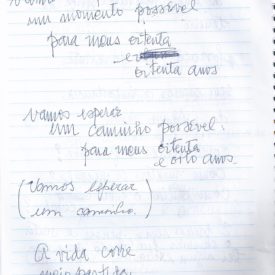 um momento possível
para meus oitenta
oitenta anos
vamos esperar
um caminho possível
para meus oitenta
e oito anos
(Vamos esperar
um caminho.)
A vida corre